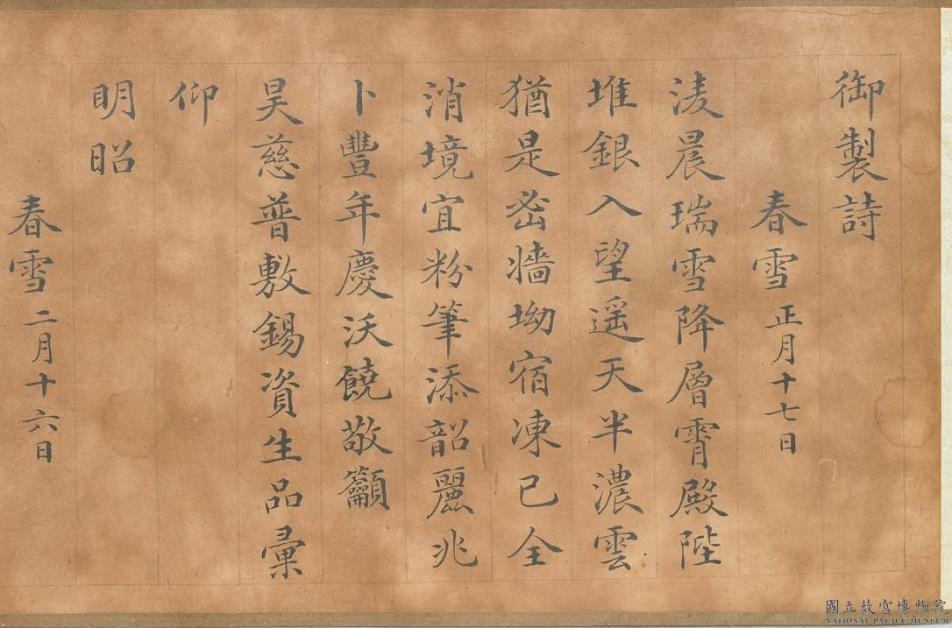 御製詩
春雪正月十七日
淩晨瑞雪降層霄殿陛
堆銀入望遥天半濃雲
猶是密牆坳宿凍已全
消境宜粉筆添韶麗兆
卜豐年慶沃饒敬籲
昊慈普敷錫資生品彙
仰
明昭
春雪二月十六日
國立故宮博物院
NATIONAL PALACE MUSEUM